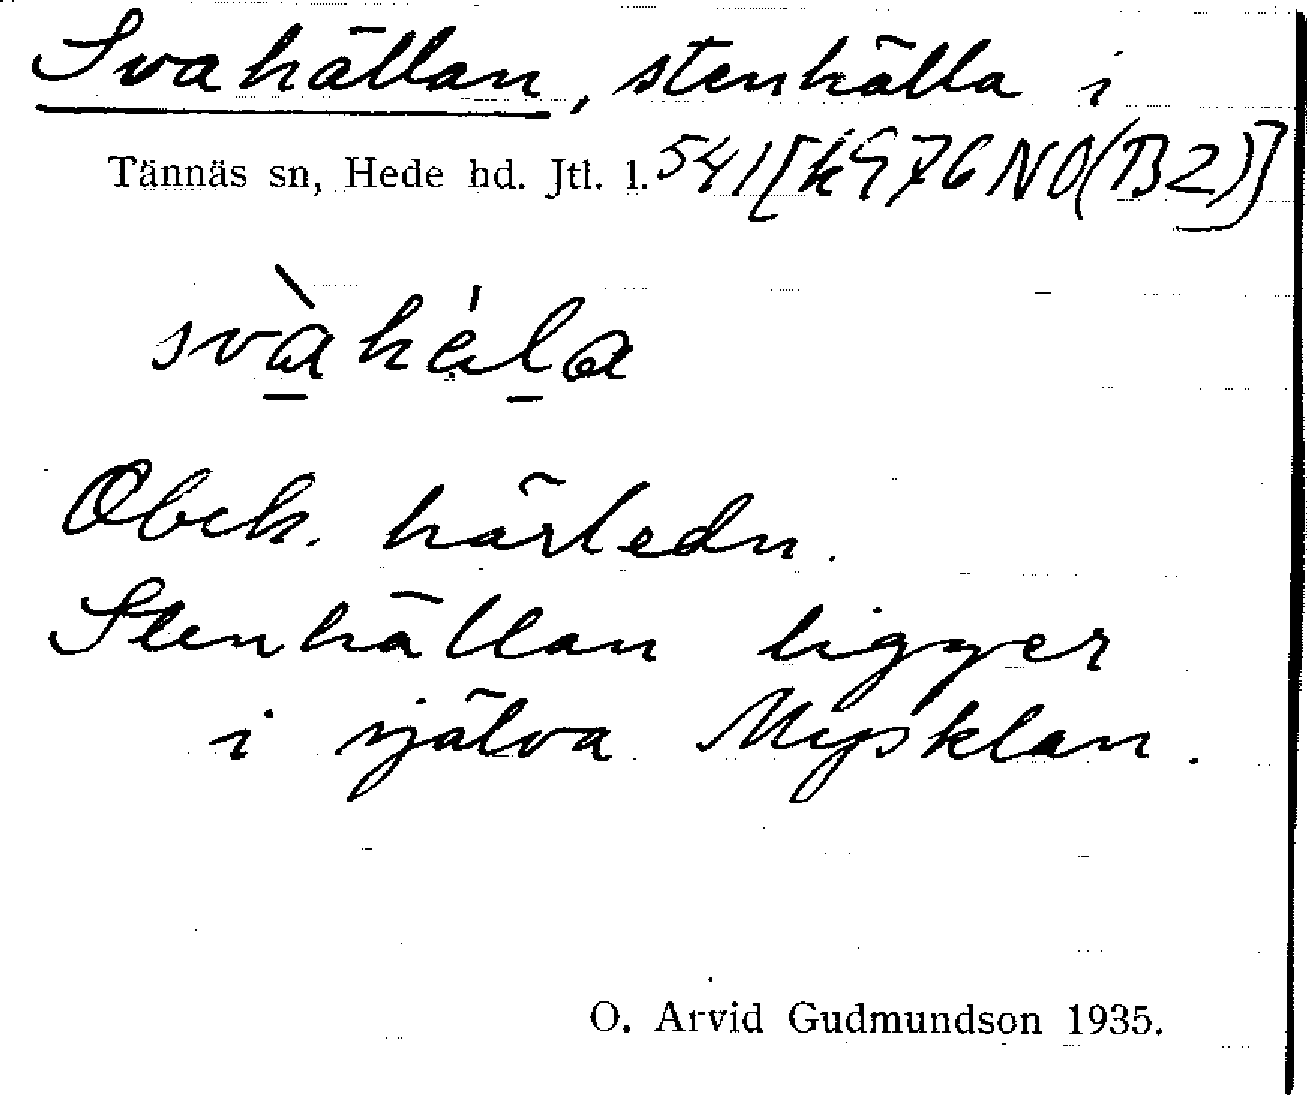 Svahällan, stenhälla i
Tännäs sn, Hede hd. Jtl. l. 541[k976NO(B2)]
svàhéla
Obek. härledn.
Stenhällan ligger
i själva Mysklan.
O. Arvid Gudmundson 1935.